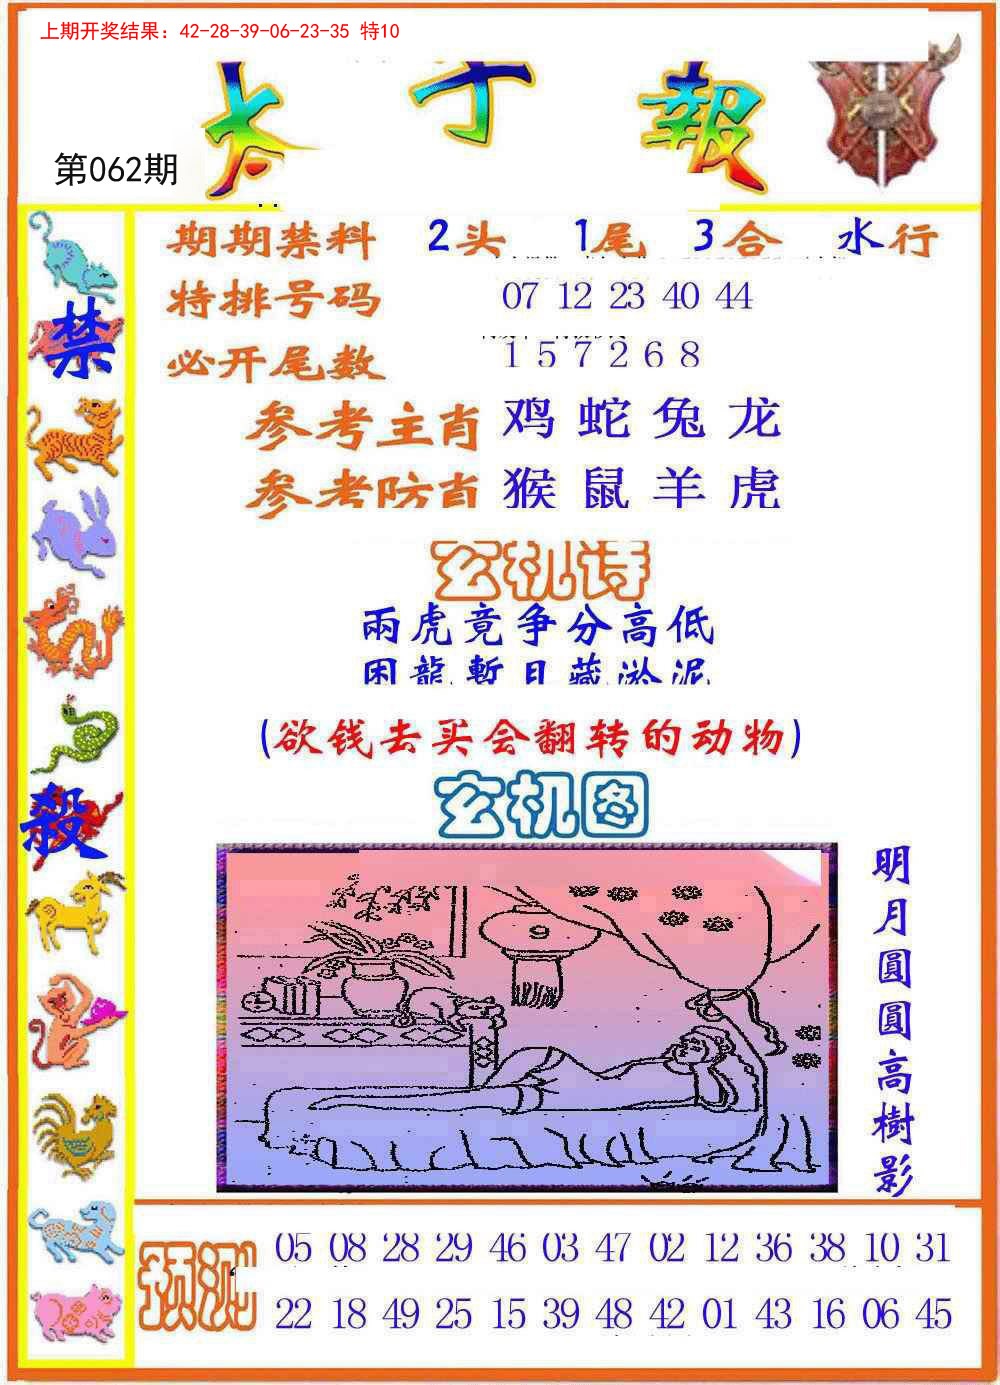 上期开奖结果：42-28-39-06-23-35 特10
太子報
第062期
期期禁料 2头 1尾 3合 水行
特排号码 07 12 23 40 44
必开尾数 1 5 7 2 6 8
参考主肖 鸡 蛇 兔 龙
参考防肖 猴 鼠 羊 虎
禁
殺
玄机诗
兩虎竟争分高低
困龍暫日藏淤泥
(欲钱去买会翻转的动物)
玄机图
明月圓圓高樹影
预测
05 08 28 29 46 03 47 02 12 36 38 10 31
22 18 49 25 15 39 48 42 01 43 16 06 45